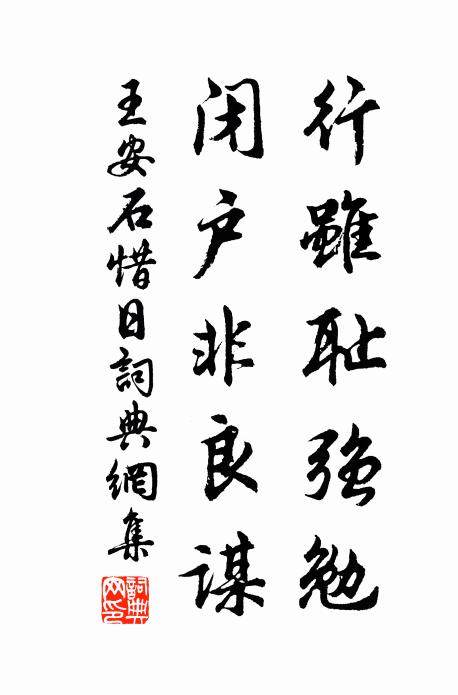 行雖耻強勉
闭户非良謀
王安石惜日詞典網集
詞典网印